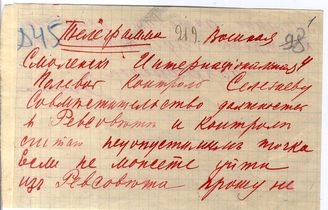 Д45 Телеграмма 212. Военная 98
Смоленск Интернациональная 4
Полевая контроль Селезневу
Совместительство должностей
в Ревсовюта и контроль
считаю недопустимым точка
если не можете уйти
из Ревсовюта прошу не